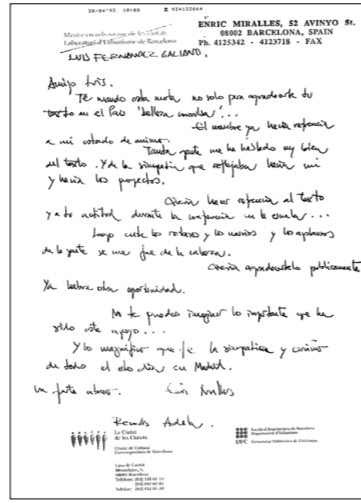 30/04/92 10:00 934122664
ENRIC MIRALLES, 52 AVINYO St.
08002 BARCELONA, SPAIN
Ph. 4125342 - 4123718 - FAX
Laboratori d'Urbanisme de Barcelona
LUIS FERNANDEZ GALIANO.
Amigo Luis.
Te mando esta nota no solo para agradecerte tu
texto en el País
El nombre ya hacía referencia
a mi estado de animo.
Tanta gente me ha hablado muy bien
del texto. Y de la simpatía que reflejaba hacia mi
y hacia los proyectos.
Quería hacer referencia al texto
y a tu actitud durante la conferencia en la escuela...
Luego entre los retrasos y los nervios y los aplausos
de la gente se me fue de la cabeza.
Quería agradecertelo publicamente
Ya habra otra oportunidad.
No te puedes imaginar lo importante que ha
sido este apoyo...
Y lo magnifico que fue la simpatica y cariño
de todo el otro día en Madrid.
Un fuerte abrazo. Enric Miralles
Recuerdos
La Ciutat
de les Ciutats
Centre de Cultura
Contemporània de Barcelona
Casa de Caritat
Montalegre, 5
08001 Barcelona
Escola d'Arquitectura de Barcelona
Departament d'Urbanisme
UPC Universitat Politècnica de Catalunya